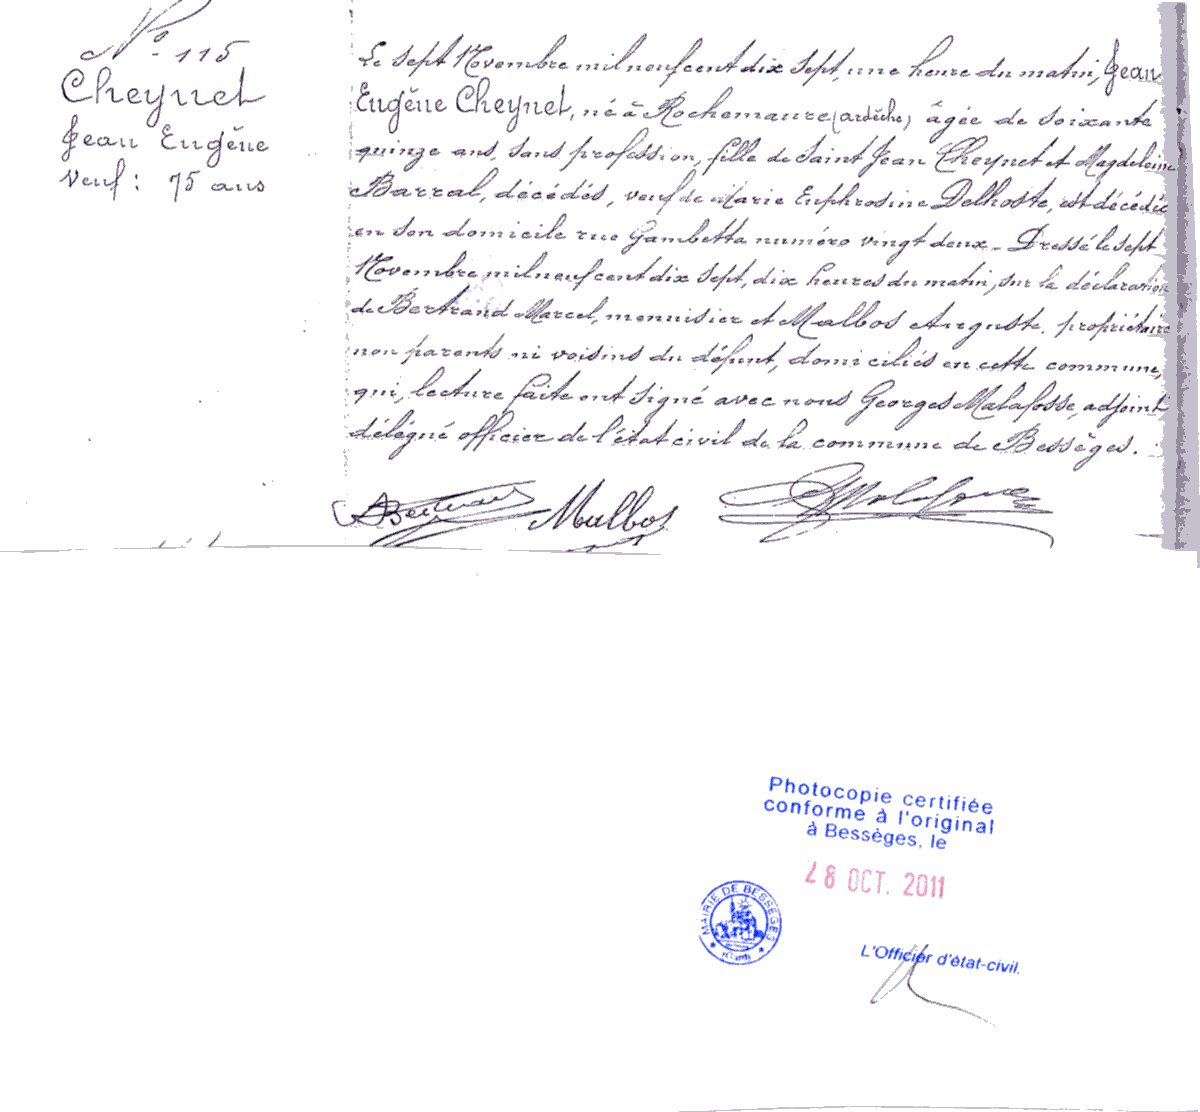 N° 115
Cheynet
Jean Eugène
veuf : 75 ans
Le sept Novembre mil neuf cent dix sept, une heure du matin, Jean
Eugène Cheynet, né à Rochemaure (ardèche) âgée de soixante
quinze ans, sans profession, fille de Saint Jean Cheynet et Magdeleine
Barral, décédés, veuf de Marie Euphrosine Delhoste, est décédée
en son domicile rue Gambetta numéro vingt deux _ Dressé le sept
Novembre mil neuf cent dix sept, dix heures du matin, sur la déclaration
de Bertrand Marcel, menuisier et Malbos Auguste, propriétaire
non parents ni voisins du défunt, domiciliés en cette commune,
qui, lecture faite ont signé avec nous Georges Malafosse, adjoint
délégué officier de l'état civil de la commune de Bessèges.
Malbos
Photocopie certifiée
conforme à l'original
à Bessèges, le
28 OCT. 2011
MAIRIE DE BESSÈGES
(Gard)
L'Officier d'état-civil.